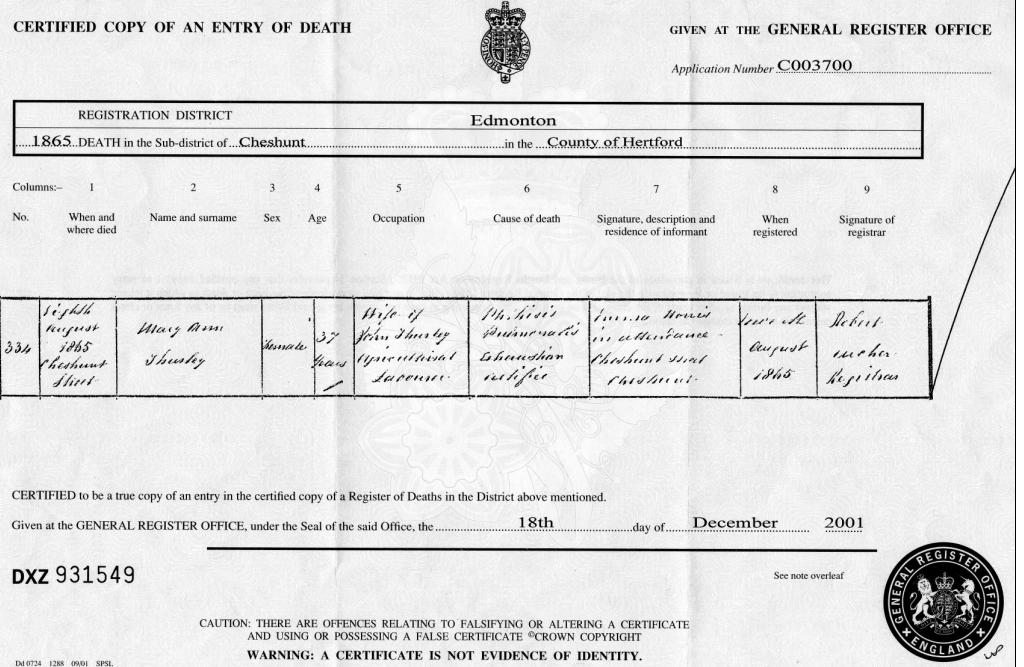 CERTIFIED COPY OF AN ENTRY OF DEATH
GIVEN AT THE GENERAL REGISTER OFFICE
Application Number C003700
REGISTRATION DISTRICT Edmonton
1865 DEATH in the Sub-district of Cheshunt in the County of Hertford
Columns:– 1 2 3 4 5 6 7 8 9
No. When and where died Name and surname Sex Age Occupation Cause of death Signature, description and residence of informant When registered Signature of registrar
334
Eighth
August
1865
Cheshunt
Street
Mary Ann
Thursby
Female
37
years
Wife of
John Thursby
Agricultural
Labourer
Phthisis
Pulmonalis
Exhaustion
certified
Emma Norris
in attendance
Cheshunt Street
Cheshunt
August
1865
Robert
Registrar
CERTIFIED to be a true copy of an entry in the certified copy of a Register of Deaths in the District above mentioned.
Given at the GENERAL REGISTER OFFICE, under the Seal of the said Office, the 18th day of December 2001
DXZ 931549
See note overleaf
GENERAL REGISTER OFFICE
ENGLAND
CAUTION: THERE ARE OFFENCES RELATING TO FALSIFYING OR ALTERING A CERTIFICATE
AND USING OR POSSESSING A FALSE CERTIFICATE ©CROWN COPYRIGHT
WARNING: A CERTIFICATE IS NOT EVIDENCE OF IDENTITY.
Dd 0724 1288 09/01 SPSL